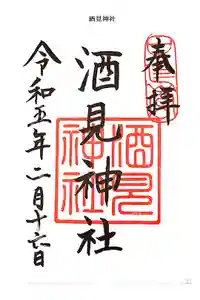 酒見神社
奉拝
酒見神社
酒見神社
令和五年二月十六日